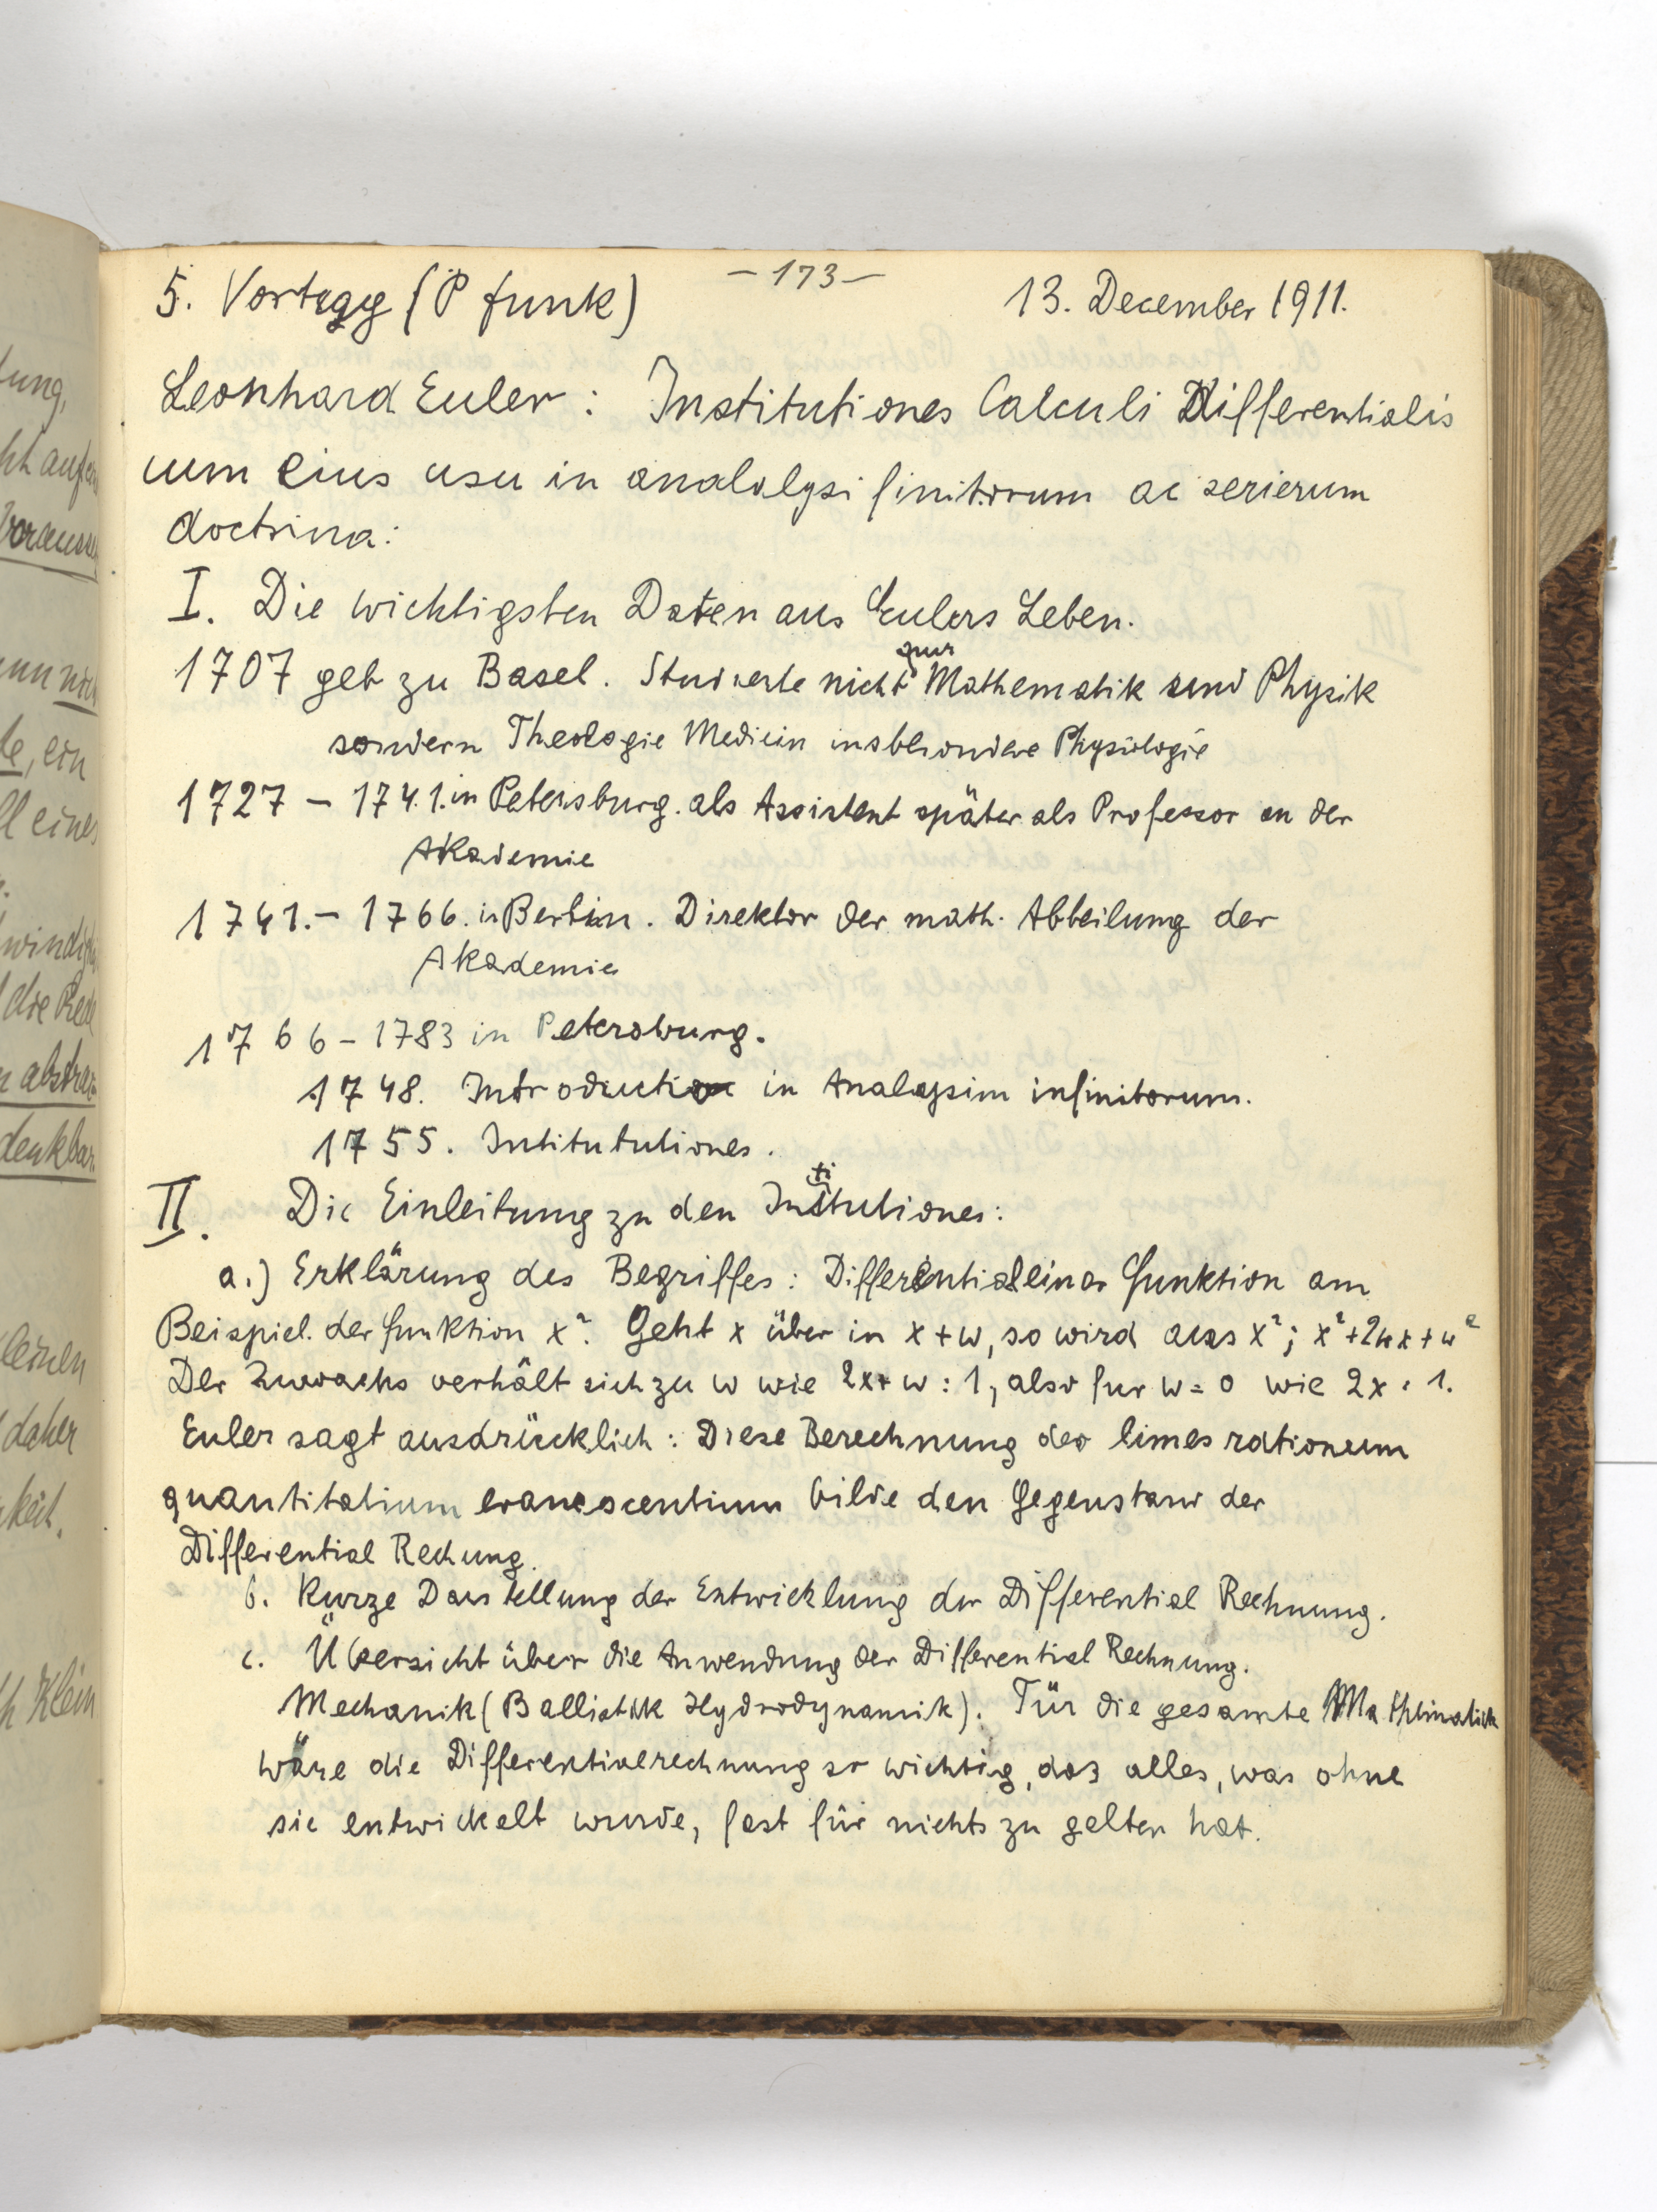 5. Vortrag (P funk)
- 173 -
13. December 1911.
Leonhard Euler : Institutiones Calculi Differentialis
cum eius usu in analalysi finitorum ac serierum
doctrina:
I. Die wichtigsten Daten aus Eulers Leben.
1707 geb zu Basel. Studierte nicht nur Mathematik und Physik
sondern Theologie Medicin insbesondere Physiologie
1727 - 1741. in Petersburg. als Assistent später als Professor an der
Akademie
1741. - 1766. in Berlin. Direktor der math. Abteilung der
Akademie
1766 - 1783 in Petersburg.
1748. Introductio in Analysim infinitorum.
1755. Intitututiones.
II. Die Einleitung zu den Institutiones:
a.) Erklärung des Begriffes: Differential einer Funktion am
Beispiel. der funktion x². Geht x über in x + w, so wird aus x²; x²+2wx+w²
Der Zuwachs verhält sich zu w wie 2x+w : 1, also fur w = 0 wie 2x : 1.
Euler sagt ausdrücklich: Diese Berechnung des limes rationum
quantitatium evanescentium bilde den Gegenstand der
Differential Rechung.
b. Kurze Darstellung der Entwicklung der Differential Rechnung.
c. Übersicht über die Anwendung der Differential Rechnung.
Mechanik (Ballistik Hydrodynamik). Für die gesamte Mathematik
wäre die Differentialrechnung so wichtig, das alles, was ohne
sie entwickelt wurde, fast für nichts zu gelten hat.
ung,
Voraussse
nn noch
te, ein
ll eines
die Rede
abstra
denkbar
leinen
daher
keit.
h Klein